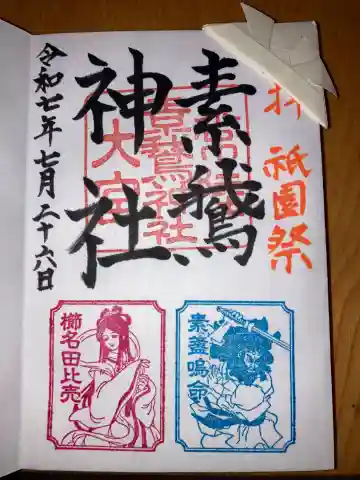 拝
祇園祭
素鵞
神社
令和七年七月二十六日
素鵞神社
大宮
櫛名田比売
素盞嗚命